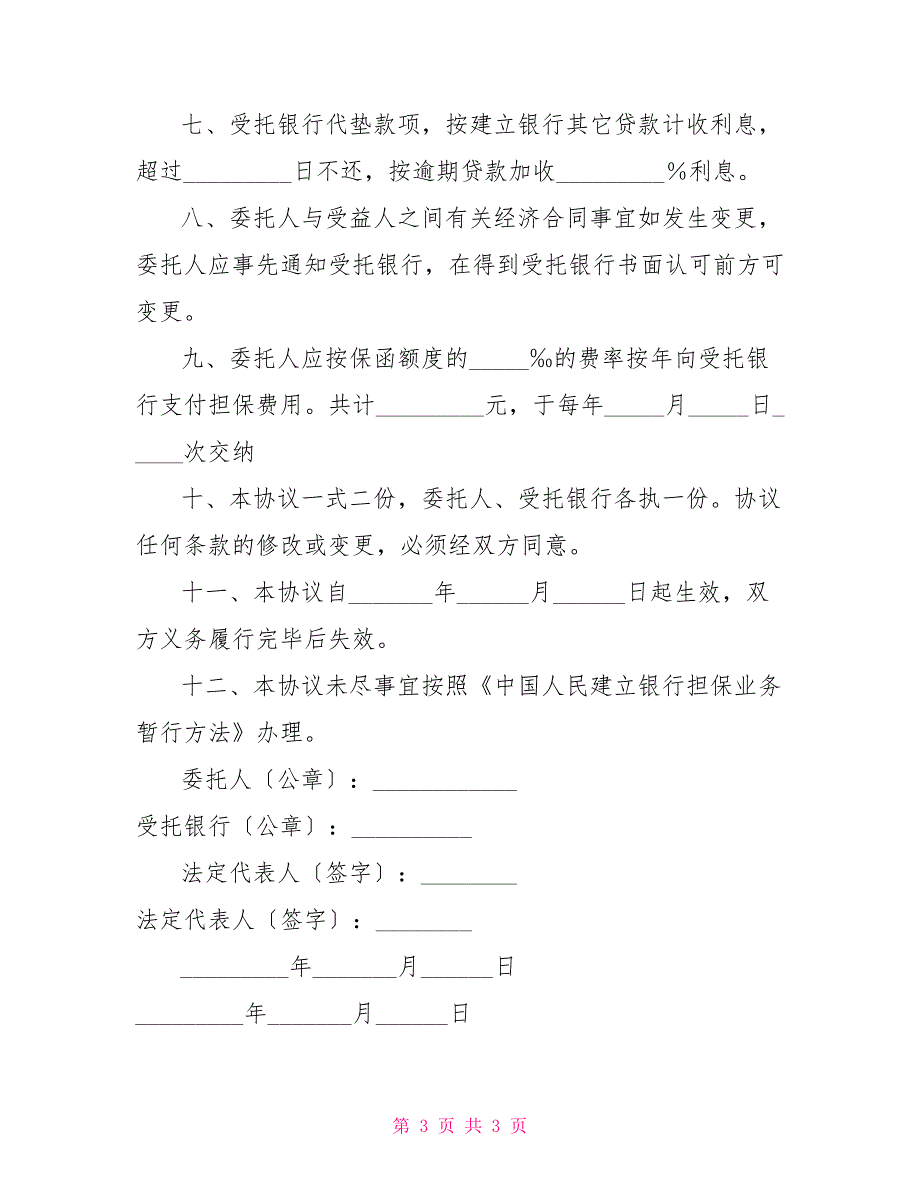 七、受托银行代垫款项，按建立银行其它贷款计收利息，
超过_________日不还，按逾期贷款加收_________%利息。
八、委托人与受益人之间有关经济合同事宜如发生变更，
委托人应事先通知受托银行，在得到受托银行书面认可前方可
变更。
九、委托人应按保函额度的_____‰的费率按年向受托银
行支付担保费用。共计_________元，于每年_____月_____日_
____次交纳
十、本协议一式二份，委托人、受托银行各执一份。协议
任何条款的修改或变更，必须经双方同意。
十一、本协议自_______年______月______日起生效，双
方义务履行完毕后失效。
十二、本协议未尽事宜按照《中国人民建立银行担保业务
暂行方法》办理。
委托人〔公章〕：____________
受托银行〔公章〕：__________
法定代表人〔签字〕：________
法定代表人〔签字〕：________
_________年_______月______日
_________年_______月______日
第 3 页 共 3 页